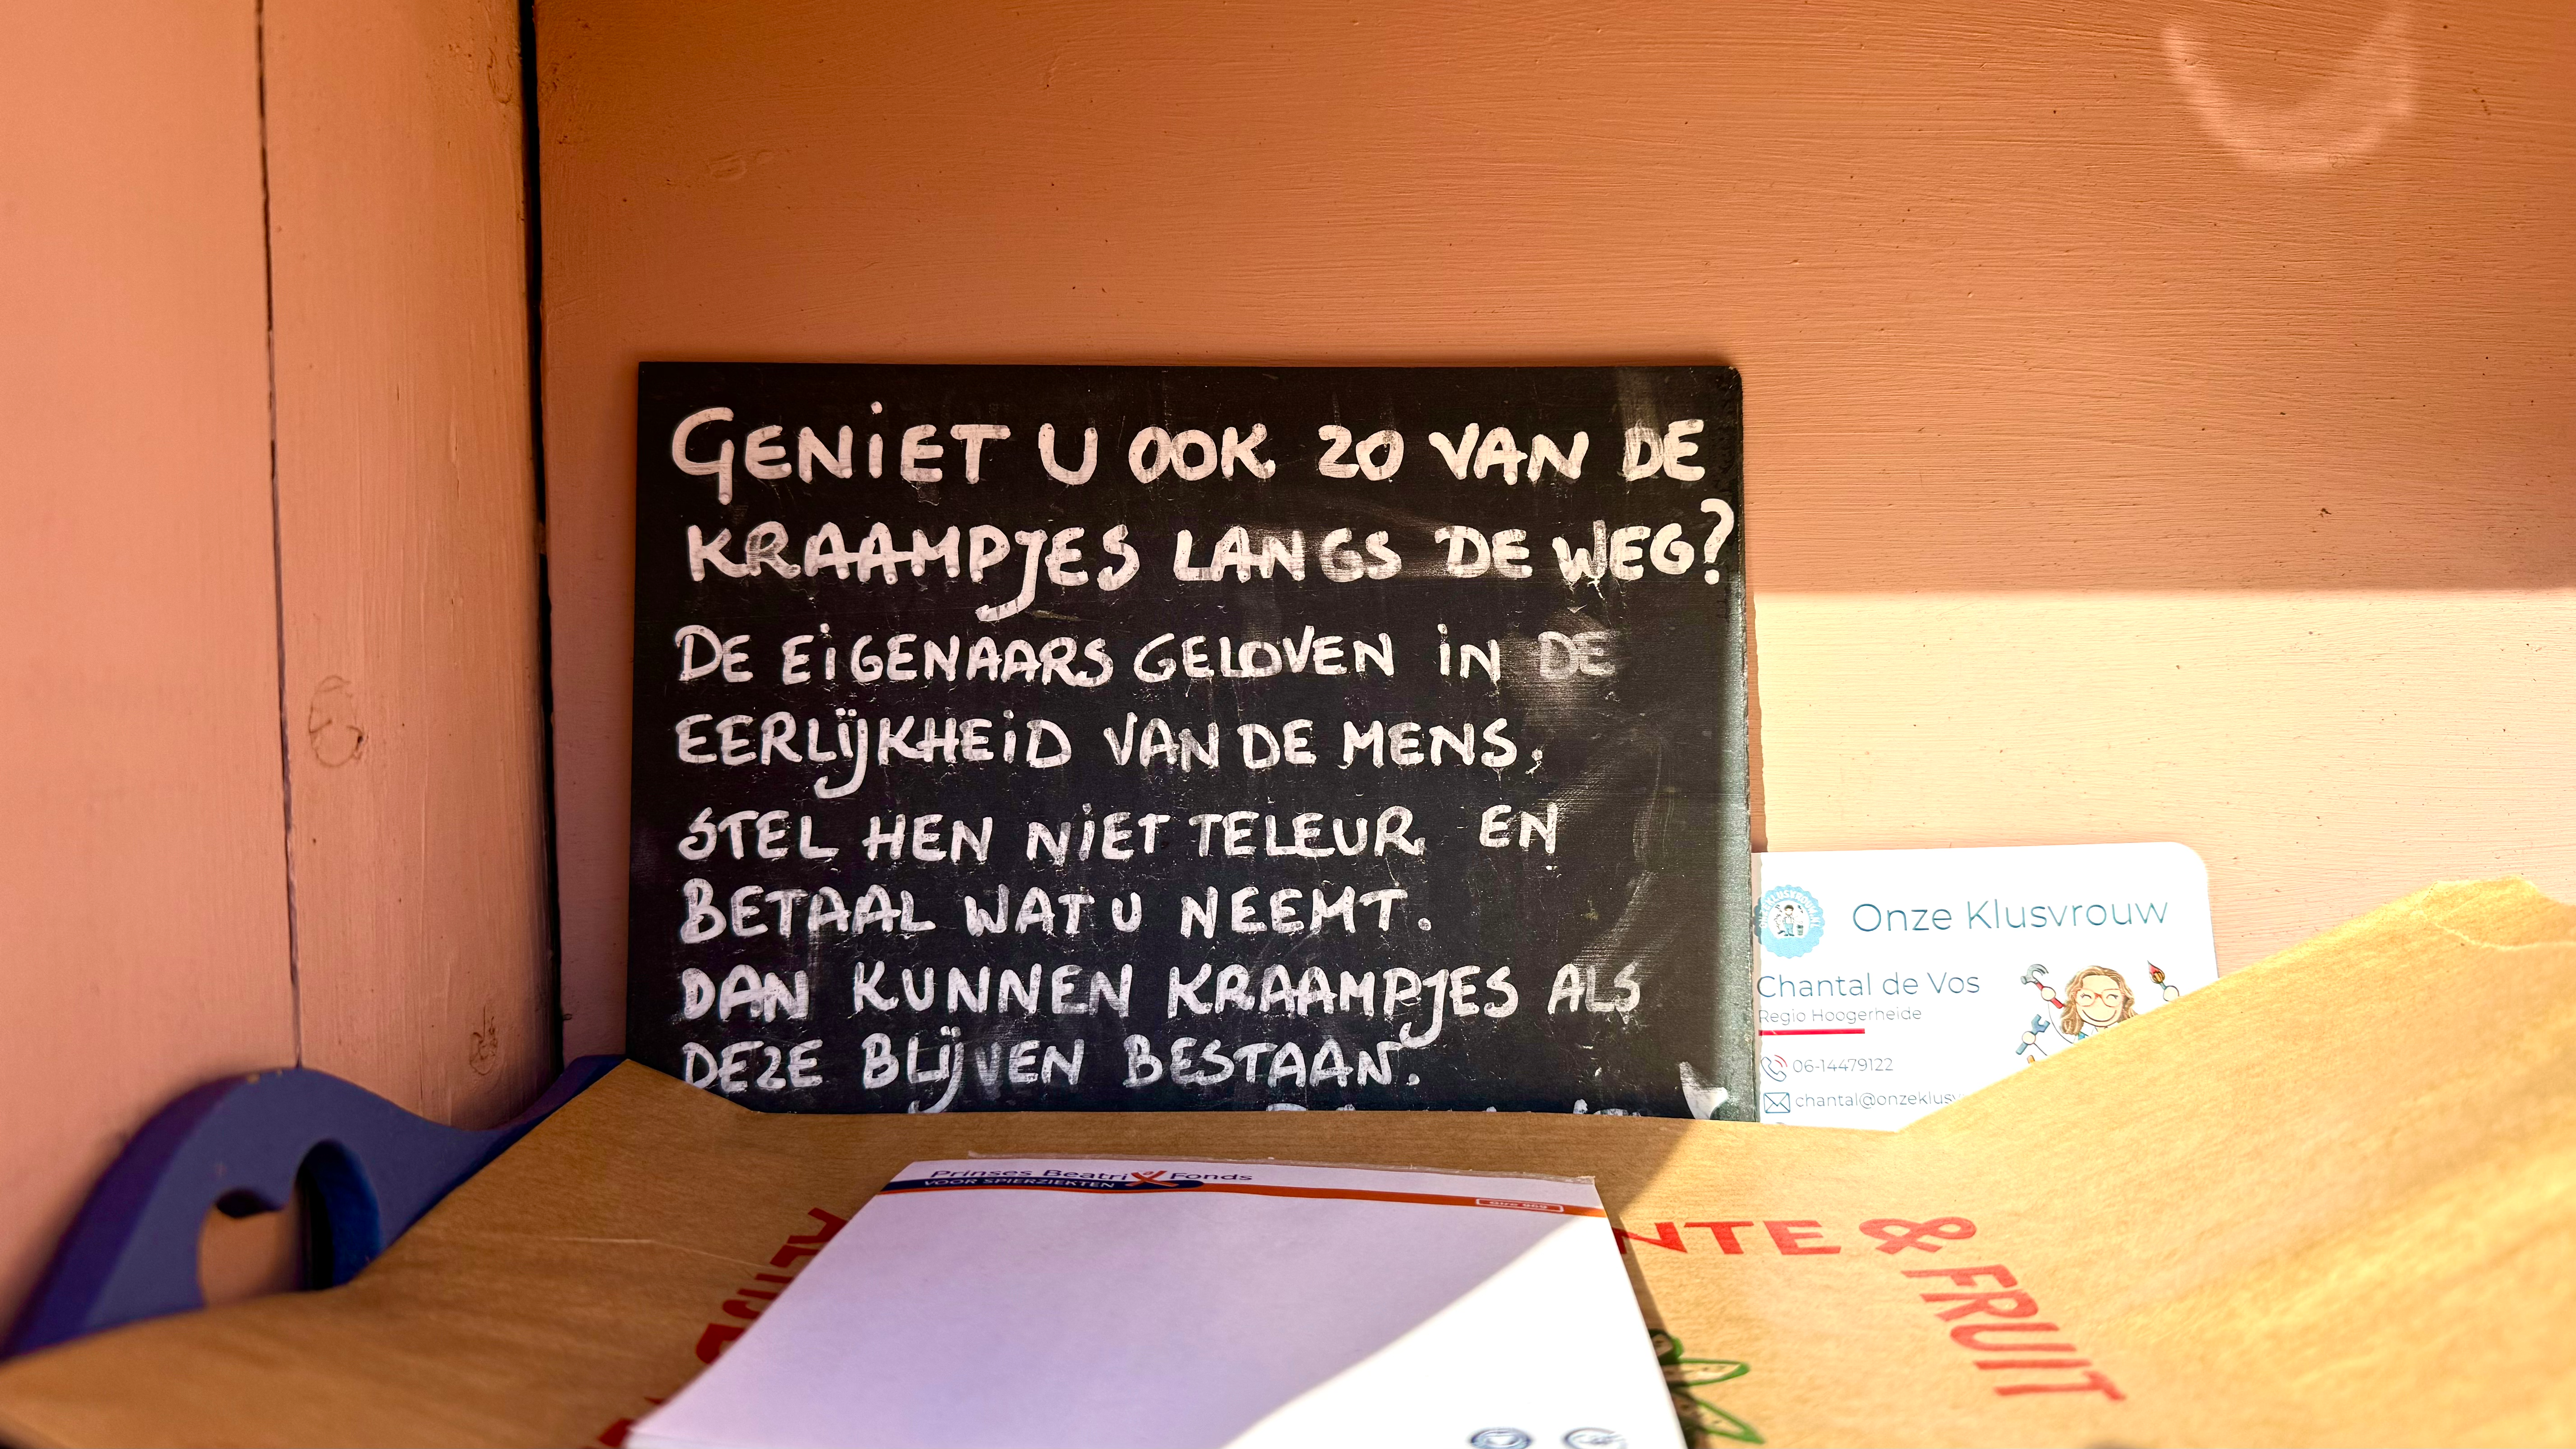 GENIET U OOK ZO VAN DE
KRAAMPJES LANGS DE WEG?
DE EIGENAARS GELOVEN IN DE
EERLIJKHEID VAN DE MENS,
STEL HEN NIET TELEUR EN
BETAAL WAT U NEEMT.
DAN KUNNEN KRAAMPJES ALS
DEZE BLIJVEN BESTAAN.
Onze Klusvrouw
Chantal de Vos
Regio Hoogerheide
06-14479122
chantal@onzeklusv
Prinses Beatrix Fonds
VOOR SPIERZIEKTEN
Giro 969
NTE & FRUIT